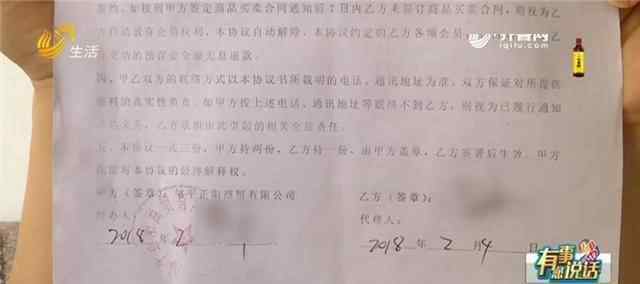 签约。如接到甲方签订商品买卖合同通知后7日内乙方未签订商品买卖合同，则视为乙
方自动放弃会员权利，本协议自动解除，本协议约定的乙方各项会员
生活
齐鲁网
iqilu.com
四、甲乙双方的联络方式以本协议书所载明的电话、通讯地址为准，双方保证对所提供
资料的真实性负责。如甲方按上述电话、通讯地址等联络不到乙方，则视为已履行通知
乙方承担由此引起的相关全部责任。
五、本协议一式三份，甲方持两份，乙方持一份，由甲方盖章，乙方签署后生效。甲方
本协议的最终解释权。
甲方（签章）：
正阳商贸有限公司
乙方（签章）：
经办人：
代理人：
2018 年 2
2018 年 2 月 4 日
有事您说话